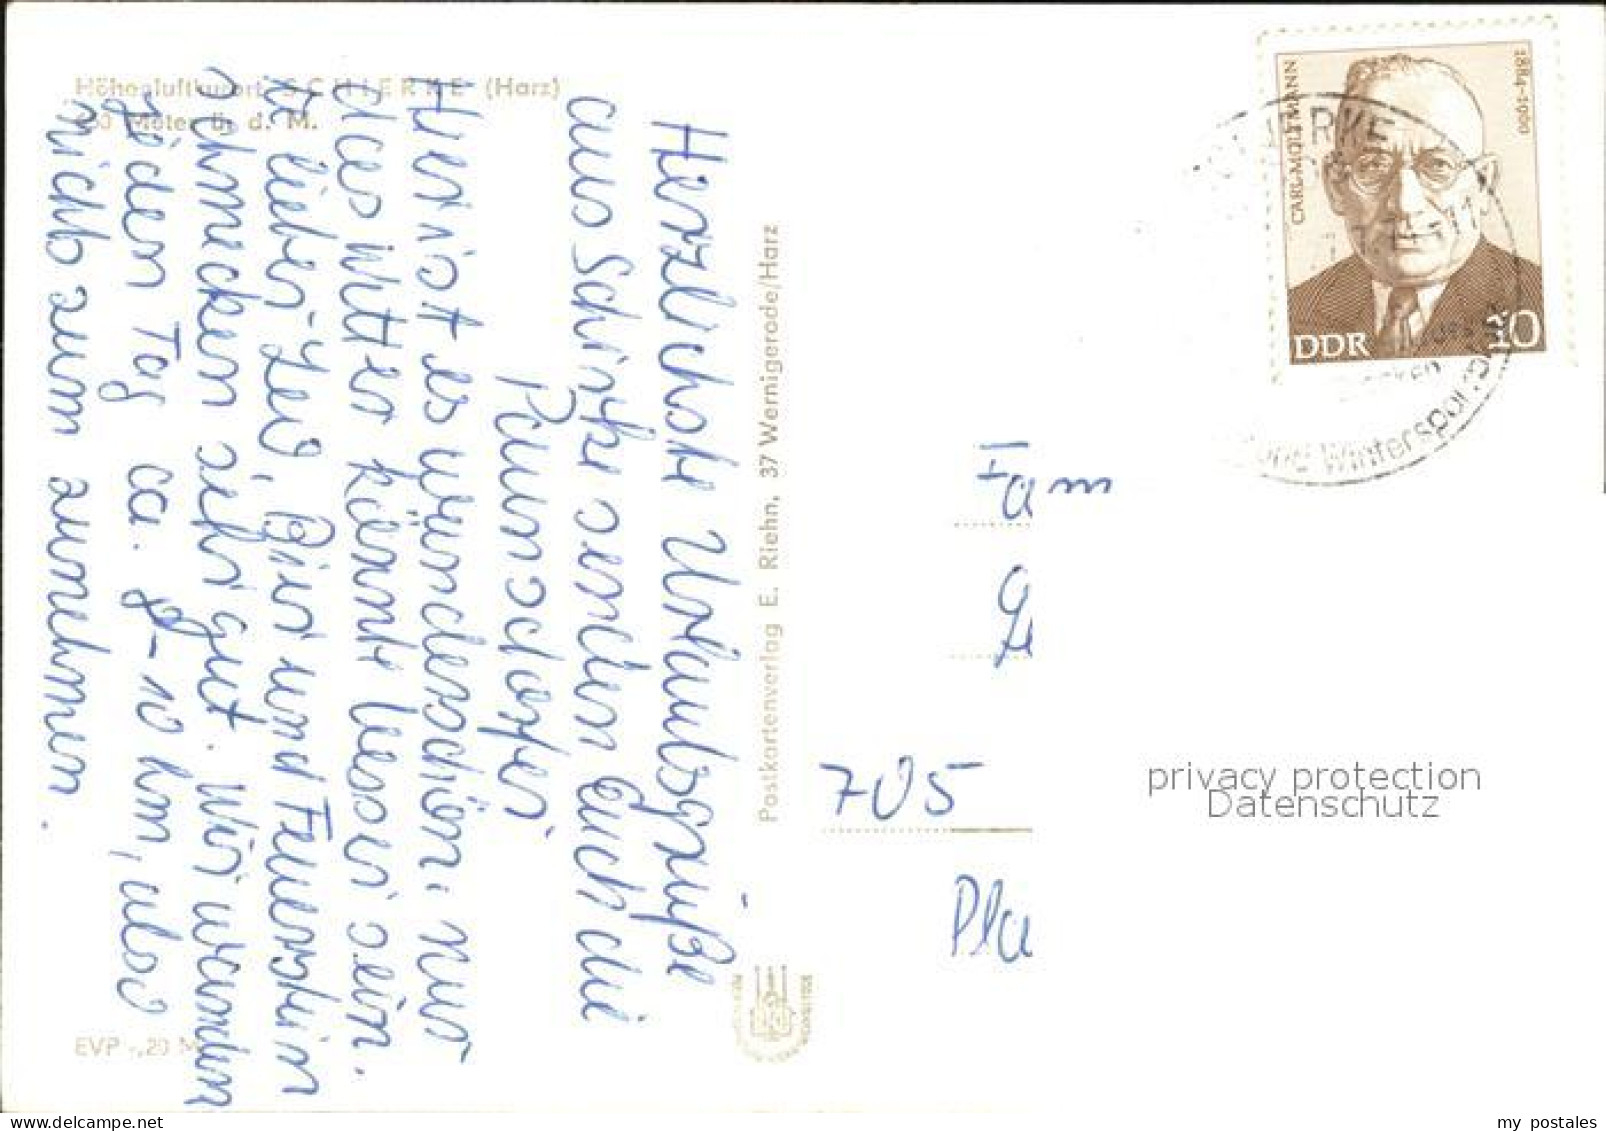 Höhenluftkurort SCHIERKE (Harz)
Meter ü. d. M.
Herzlichste Urlaubsgrüße
aus Schirke senden Euch die
Paunsdorfer
Hier ist es wunderschön. Nur
das Wetter könnte besser sein.
lieber
Bier und Feuerstein
schmecken sehr gut. Wir wandern
jeden Tag ca. 8-10 km, um
nicht zum zunehmen.
EVP -,20 M
Postkartenverlag E. Riehn, 37 Wernigerode/Harz
CARL MOLTMANN
1884-1960
DDR 10
SCHIERKE
und Wintersport
Fam
705
Pla
privacy protection
Datenschutz
my postales